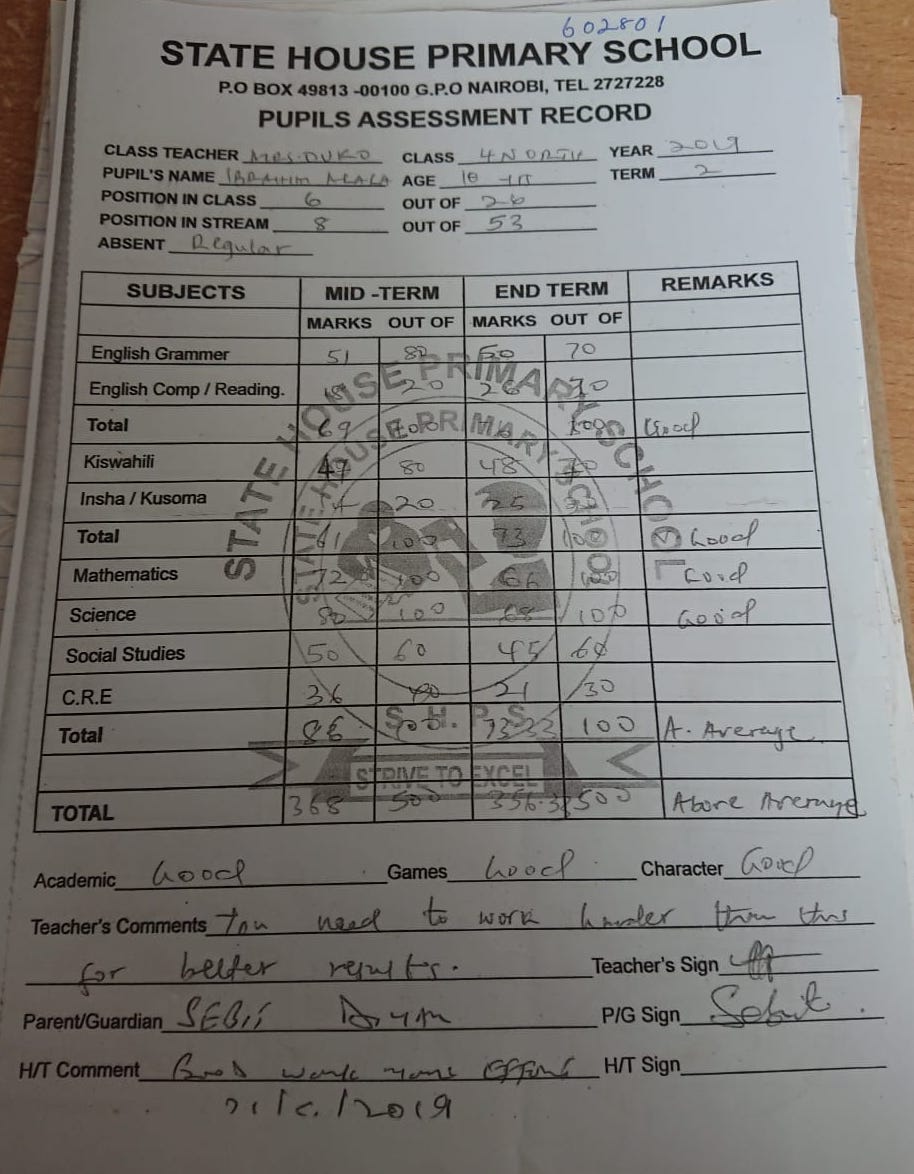 602801
STATE HOUSE PRIMARY SCHOOL
P.O BOX 49813 -00100 G.P.O NAIROBI, TEL 2727228
PUPILS ASSESSMENT RECORD
CLASS TEACHER MRS. DUKO CLASS 4 NORTH YEAR 2019
PUPIL'S NAME IBRAHIM AGE 10 TERM 2
POSITION IN CLASS 6 OUT OF 26
POSITION IN STREAM 8 OUT OF 53
ABSENT Regular
SUBJECTS MID -TERM END TERM REMARKS
MARKS OUT OF MARKS OUT OF
English Grammer 51 80 50 70
English Comp / Reading. 18 20 26
Total 69 100 Good
Kiswahili 47 80 48 70
Insha / Kusoma 20 25
Total 61 100 73 100 Good
Mathematics 72 100 66 100 Good
Science 80 100 68 100 Good
Social Studies 50 60 45 60
C.R.E 36 40 21 30
Total 86 100 73.33 100 A. Average
TOTAL 368 500 500 Above Average
STATE HOUSE PRIMARY SCHOOL
STATE HOUSE PRIMARY SCHOOL
S.H.P.S
STRIVE TO EXCEL
Academic Good Games Good Character Good
Teacher's Comments You need to work harder than this
for better results. Teacher's Sign
Parent/Guardian P/G Sign
H/T Comment Good work more effort H/T Sign
/2019